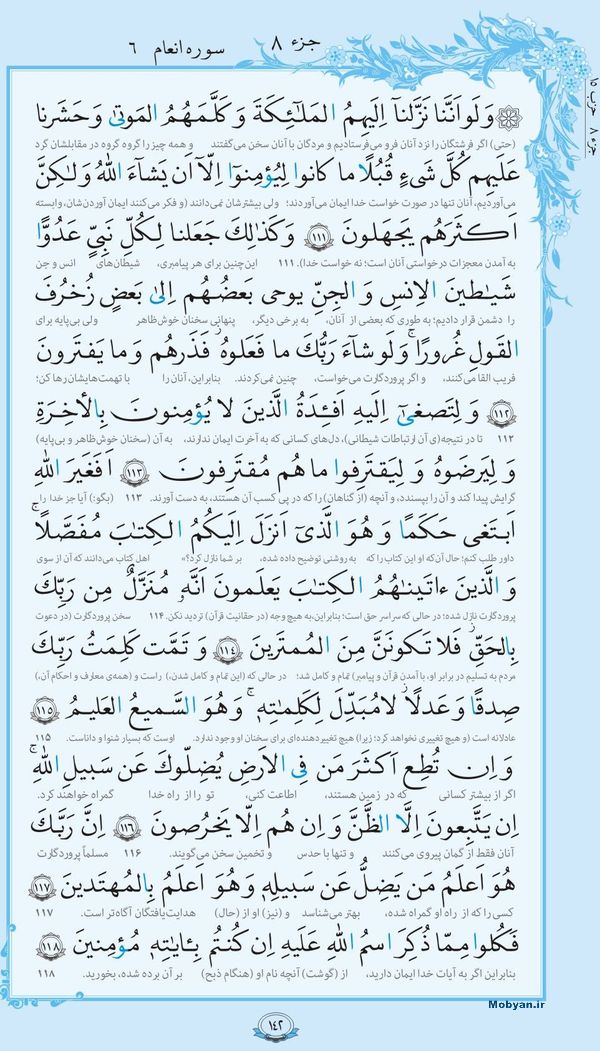 جزء ۸
سوره انعام ۶
جزء ۸ حزب ۱۵
وَلَواَنَّنا نَزَّلنآ اِلَيهِمُ المَلٰٓئِكَةَ وَكَلَّمَهُمُ المَوتىٰ وَحَشَرنا
(حتی) اگر فرشتگان را نزد آنان فرو می‌فرستادیم و مردگان با آنان سخن می‌گفتند و همه چیز را گروه گروه در مقابلشان گرد
عَلَيهِم كُلَّ شَىءٍ قُبُلًا ما كانوا لِيُؤمِنوٓا اِلّآ اَن يَشآءَ اللهُ وَلٰكِنَّ
می‌آوردیم، آنان تنها در صورت خواست خدا ایمان می‌آوردند؛ ولی بیشترشان نمی‌دانند (و فکر می‌کنند ایمان آوردن‌شان، وابسته
اَكثَرَهُم يَجهَلونَ ۱۱۱ وَكَذٰلِكَ جَعَلنا لِكُلِّ نَبِىٍّ عَدُوًّا
به آمدن معجزات درخواستی آنان است؛ نه خواست خدا). ۱۱۱ این‌چنین برای هر پیامبری، شیطان‌های انس و جن
شَيٰطينَ الاِنسِ وَ الجِنِّ يوحى بَعضُهُم اِلىٰ بَعضٍ زُخرُفَ
را دشمن قرار دادیم؛ به طوری که بعضی از آنان، به برخی دیگر، پنهانی سخنان خوش‌ظاهر ولی بی‌پایه برای
القَولِ غُرورًا ۚ وَلَو شآءَ رَبُّكَ ما فَعَلوهُ ۖ فَذَرهُم وَما يَفتَرونَ
فریب القا می‌کنند، و اگر پروردگارت می‌خواست، چنین نمی‌کردند. بنابراین، آنان را با تهمت‌هایشان رها کن؛
۱۱۲ وَ لِتَصغىٰٓ اِلَيهِ اَفـِٔدَةُ الَّذينَ لا يُؤمِنونَ بِالأخِرَةِ
۱۱۲ تا در نتیجه(ی آن ارتباطات شیطانی)، دل‌های کسانی که به آخرت ایمان ندارند، به آن (سخنان خوش‌ظاهر و بی‌پایه)
وَ لِيَرضَوهُ وَ لِيَقتَرِفوا ما هُم مُقتَرِفونَ ۱۱۳ اَفَغَيرَ اللهِ
گرایش پیدا کند و آن را بپسندد، و آنچه (از گناهان) را که در پی کسب آن هستند، به دست آورند. ۱۱۳ (بگو:) آیا جز خدا را
اَبتَغى حَكَمًا وَ هُوَ الَّذىٓ اَنزَلَ اِلَيكُمُ الكِتٰبَ مُفَصَّلًا ۚ
داور طلب کنم؛ حال آن‌که او این کتاب را که به روشنی توضیح داده شده، بر شما نازل کرد؟» اهل کتاب می‌دانند که آن از سوی
وَ الَّذينَ ءاتَينٰهُمُ الكِتٰبَ يَعلَمونَ اَنَّهُ مُنَزَّلٌ مِن رَبِّكَ
پروردگارت نازل شده؛ در حالی که سراسر حق است؛ بنابراین، به هیچ وجه (در حقانیت قرآن) تردید نکن. ۱۱۴ سخن پروردگارت (در دعوت
بِالحَقِّ ۖ فَلا تَكونَنَّ مِنَ المُمتَرينَ ۱۱۴ وَ تَمَّت كَلِمَتُ رَبِّكَ
مردم به تسلیم در برابر او، با آمدن قرآن و پیامبر) تمام و کامل شد؛ در حالی که (این تمام و کامل شدن،) راست و (همه‌ی معارف و احکام آن،)
صِدقًا وَعَدلًا ۚ لامُبَدِّلَ لِكَلِمٰتِهِ ۚ وَهُوَ السَّميعُ العَليمُ ۱۱۵
عادلانه است (و هیچ تغییری نخواهد کرد؛ زیرا) هیچ تغییردهنده‌ای برای سخنان او وجود ندارد. اوست که بسیار شنوا و داناست. ۱۱۵
وَ اِن تُطِع اَكثَرَ مَن فِى الاَرضِ يُضِلّوكَ عَن سَبيلِ اللهِ ۚ
اگر از بیشتر کسانی که در زمین هستند، اطاعت کنی، تو را از راه خدا گمراه خواهند کرد.
اِن يَتَّبِعونَ اِلَّا الظَّنَّ وَ اِن هُم اِلّا يَخرُصونَ ۱۱۶ اِنَّ رَبَّكَ
آنان فقط از گمان پیروی می‌کنند و تنها با حدس و تخمین سخن می‌گویند. ۱۱۶ مسلماً پروردگارت
هُوَ اَعلَمُ مَن يَضِلُّ عَن سَبيلِهِ ۖ وَهُوَ اَعلَمُ بِالمُهتَدينَ ۱۱۷
کسی را که از راه او گمراه شده، بهتر می‌شناسد و (نیز) او از (حال) هدایت‌یافتگان آگاه‌تر است. ۱۱۷
فَكُلوا مِمّا ذُكِرَ اسمُ اللهِ عَلَيهِ اِن كُنتُم بِـٔايٰتِهِ مُؤمِنينَ ۱۱۸
بنابراین اگر به آیات خدا ایمان دارید، از (گوشت) آنچه نام او (هنگام ذبح) بر آن برده شده، بخورید. ۱۱۸
۱۴۲
Mobyan.ir